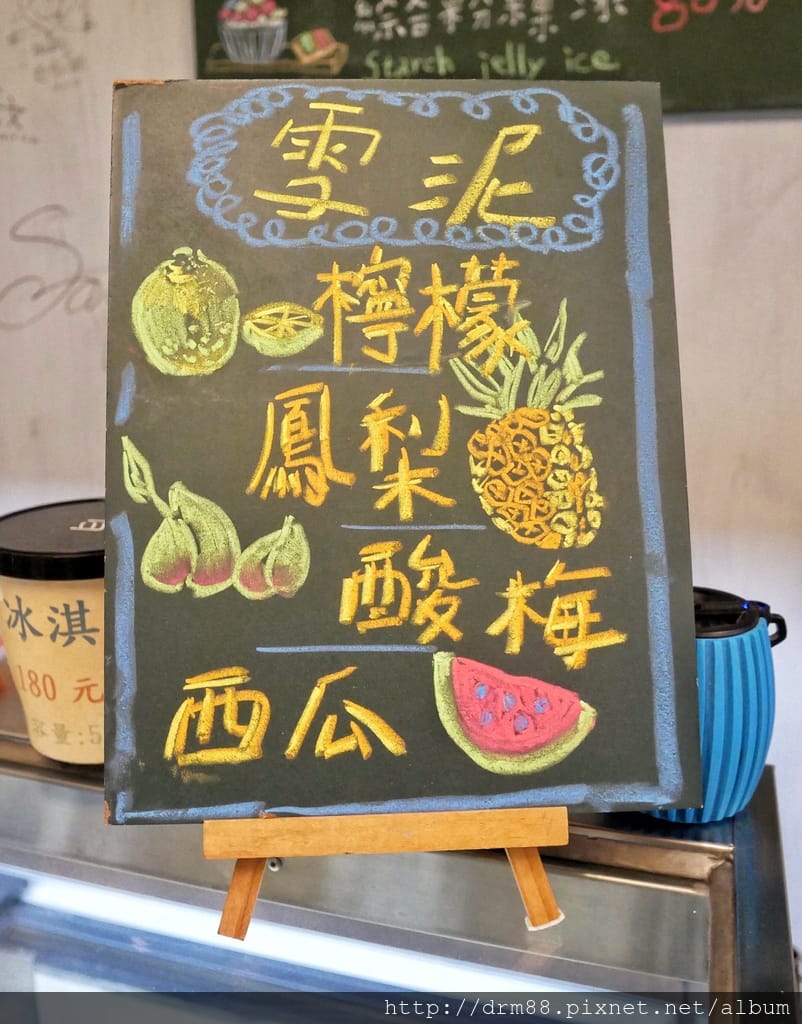 綜合粉粿冰 80元
Starch jelly ice
雪泥
檸檬
鳳梨
酸梅
西瓜
冰淇
180 元
容量:5
http://drm88.pixnet.net/album